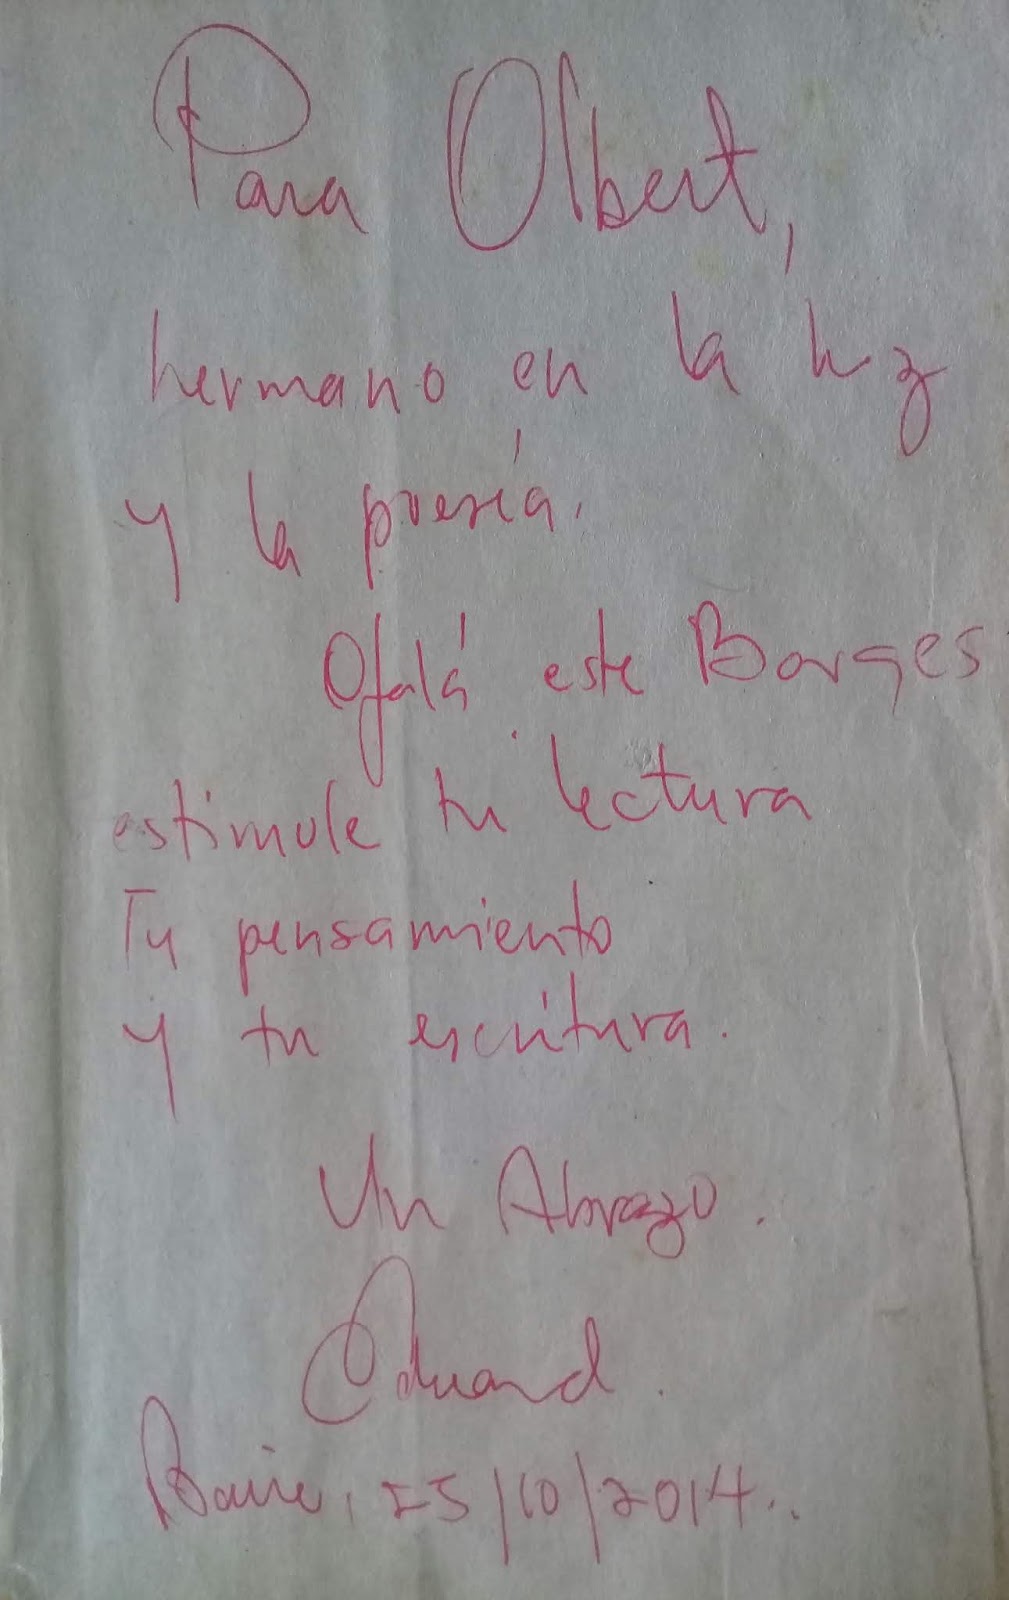 Para Olbert,
hermano en la luz
y la poesía.
Ojalá este Borges
estimule tu lectura
Tu pensamiento
y tu escritura.
Un Abrazo.
Eduard.
25/10/2014..